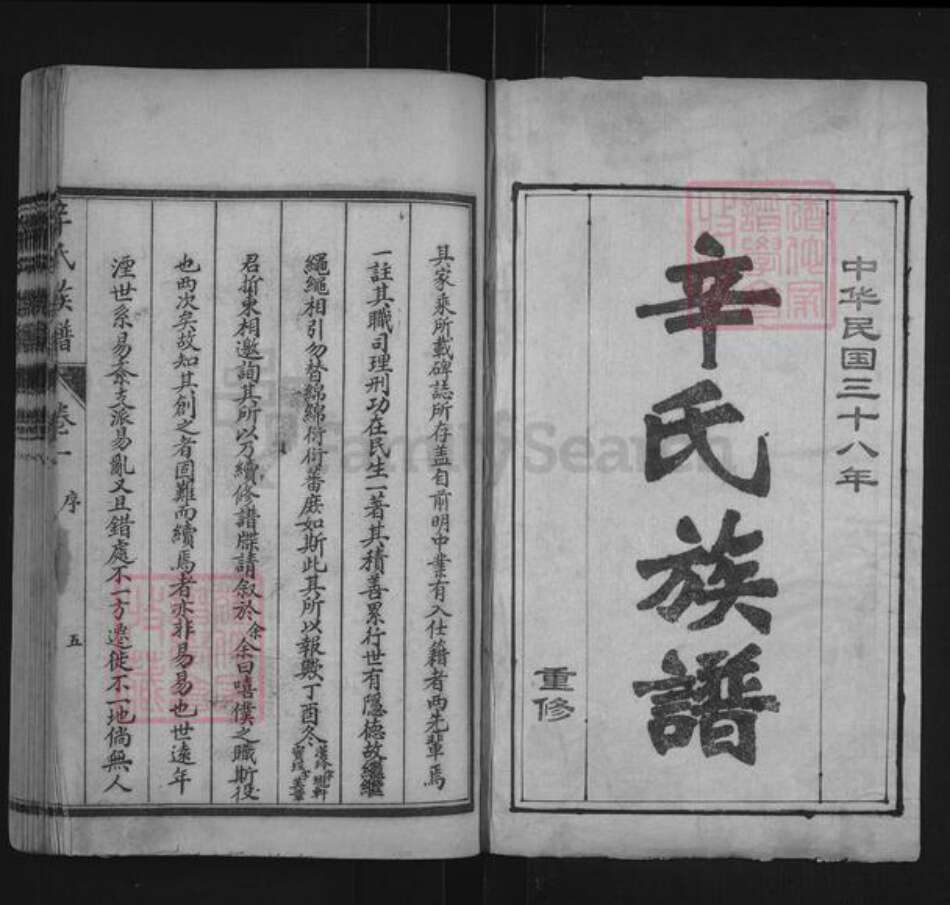 中华民国三十八年
辛氏族譜
重修
其家乘所載碑誌所存盖自前明中業有入仕籍者两先輩焉
一註其職司理刑功在民生一著其積善累行世有隱德故繼繼
繩繩相引勿替綿綿衍衍蕃庶如斯此其所以報歟丁酉冬
君折東相邀詢其所以乃續修譜牒請叙於余余曰嘻僕之職斯役
也两次矣故知其創之者固難而續焉者亦非易易也世遠年
湮世系易紊支派易亂又且錯處不一方遷徙不一地倘無人
辛氏族譜
卷一
序
五
FamilySearch